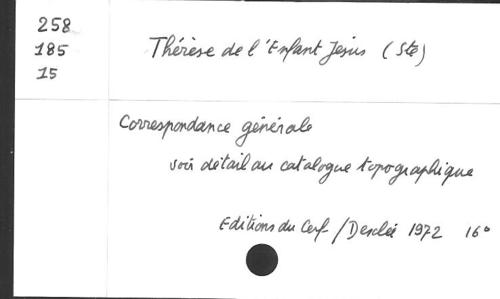 258
185
15
Thérèse de l'Enfant Jésus (Ste)
Correspondance générale
voir détail au catalogue topographique
Editions du Cerf / Desclée 1972 16°